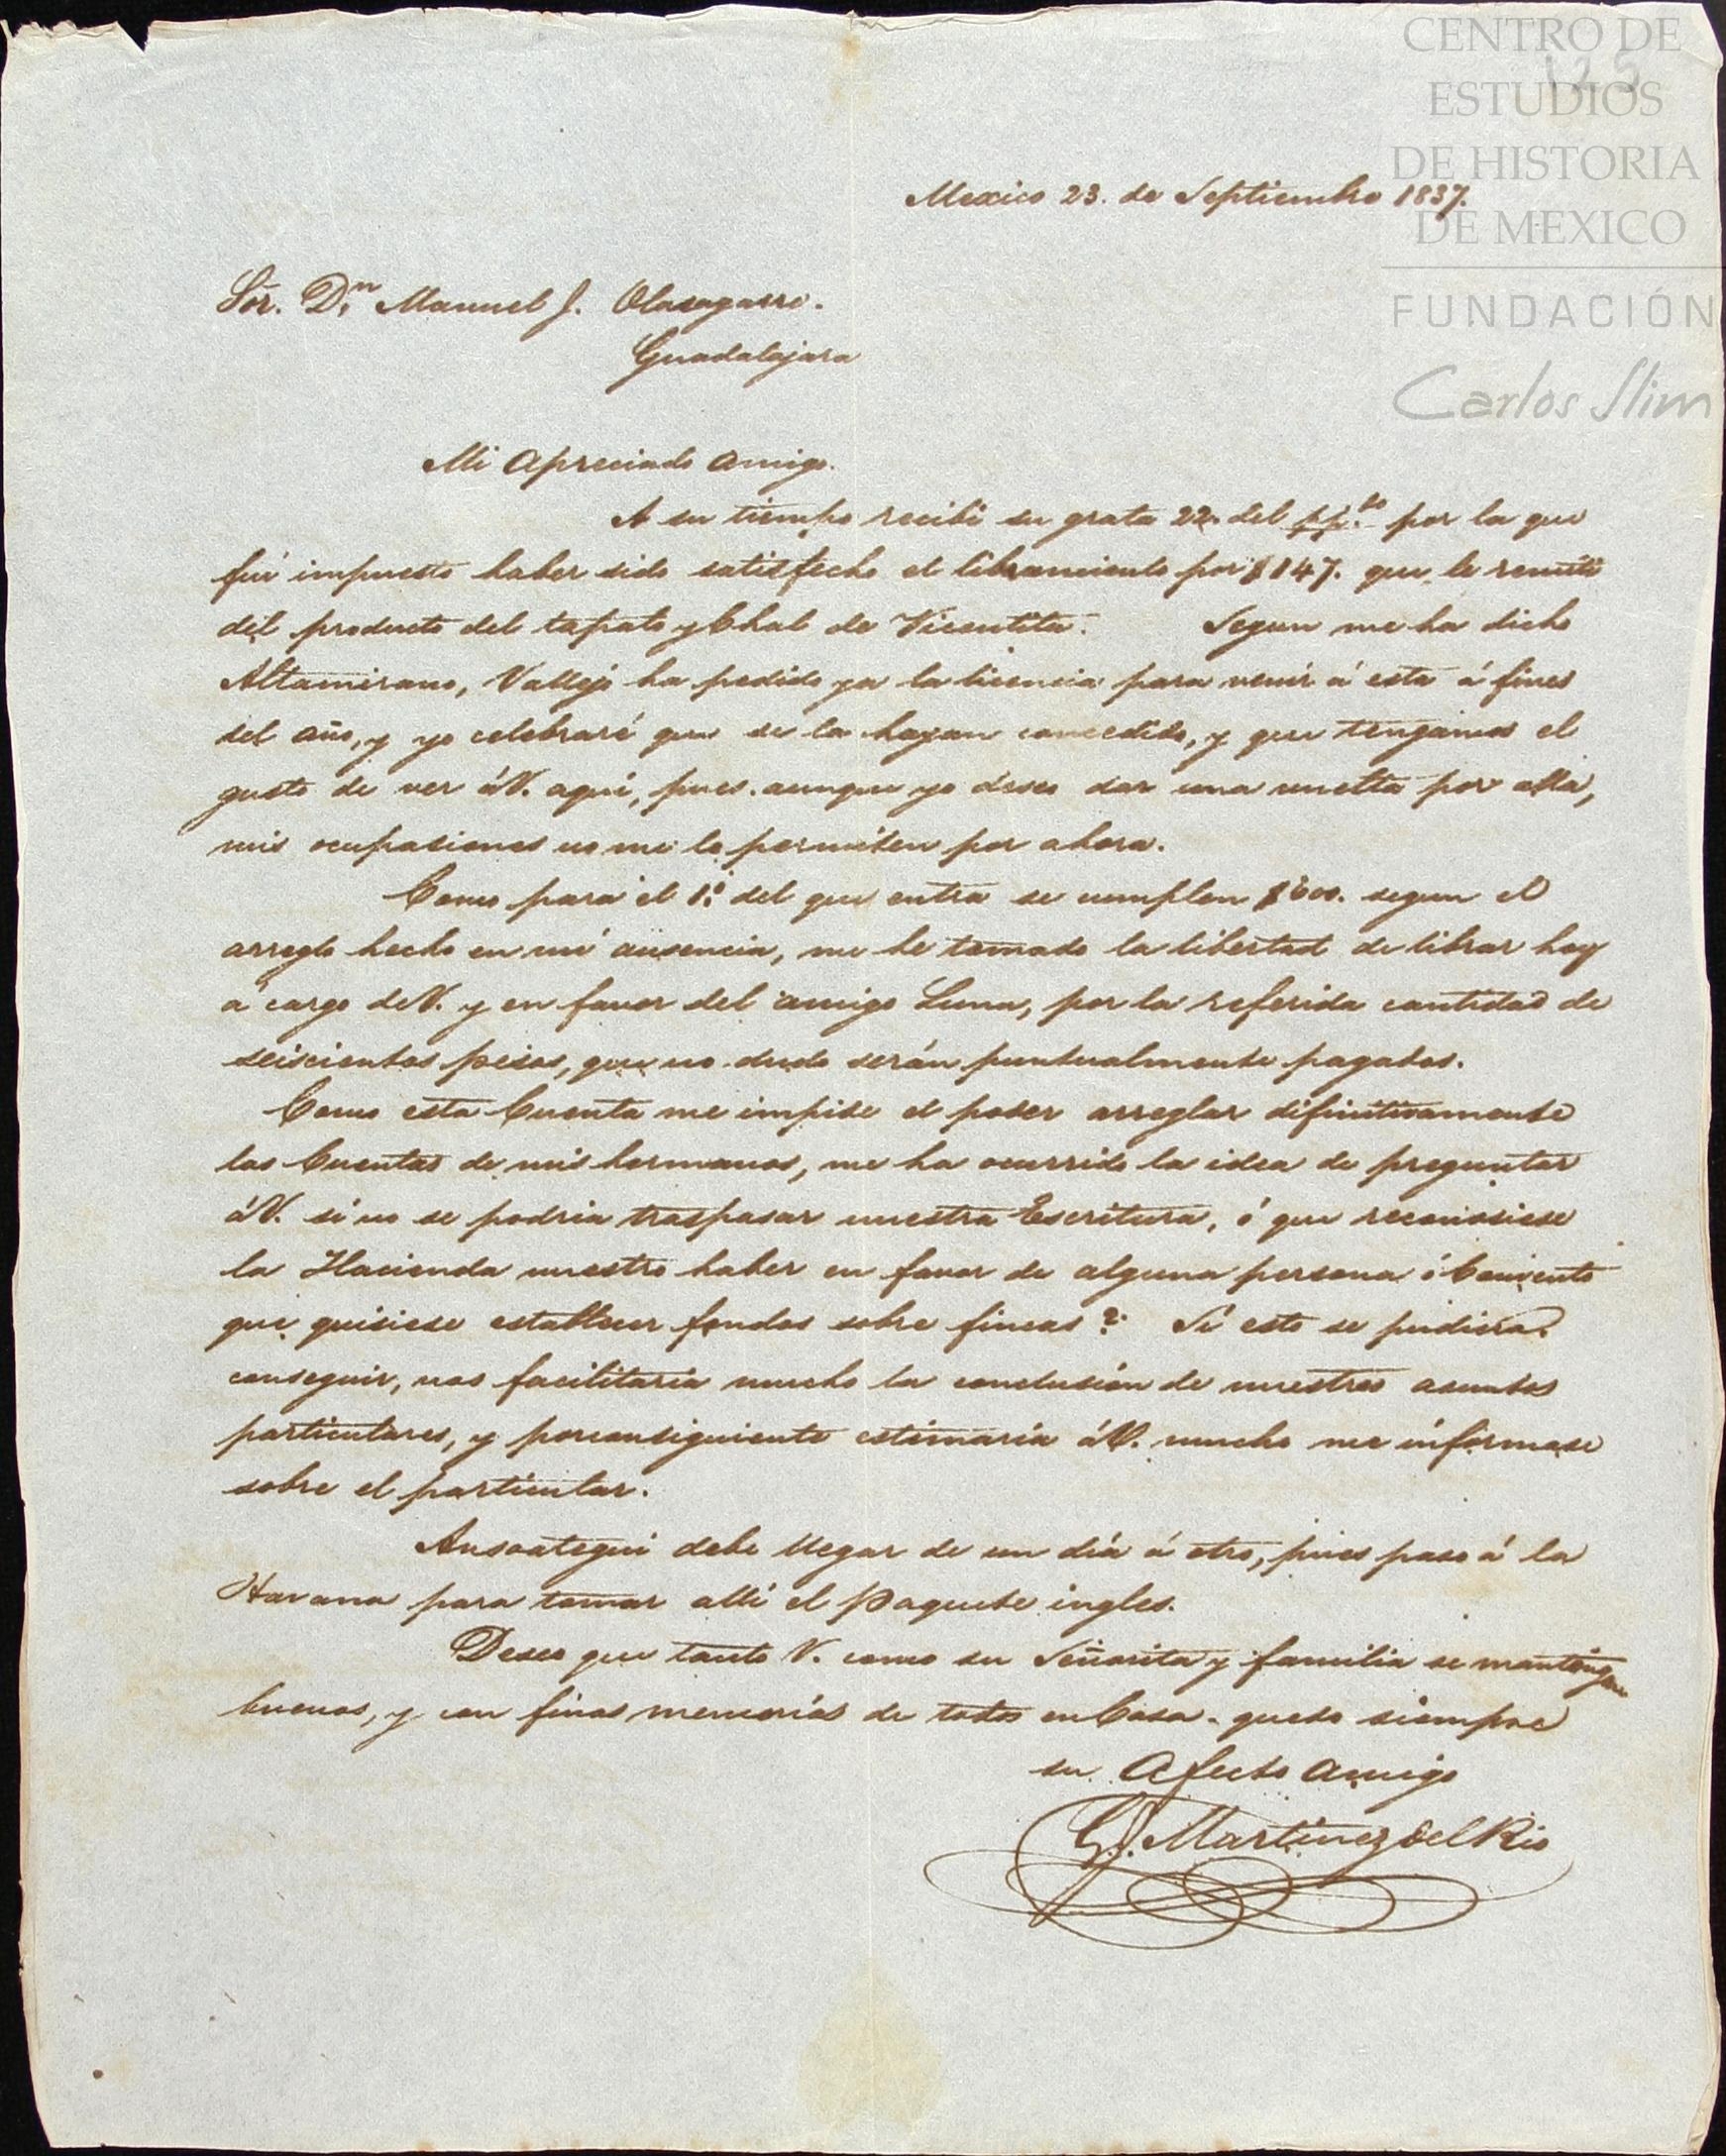 CENTRO DE
ESTUDIOS
DE HISTORIA
DE MEXICO
FUNDACIÓN
Carlos Slim
125
Mexico 23. de Septiembre 1837.
Sōr. Dn Manuel J. Olasagarre.
Guadalajara
Mi Apreciado Amigo.
A su tiempo recibi su grata 22. del pp.do por la que
fui impuesto haber sido satisfecho el libramiento por $147. que le remiti
del producto del tapalo y Chal de Vicentita. Segun me ha dicho
Altamirano, Vallejo ha pedido ya la licencia para venir á esta á fines
del año, y yo celebraré que se la hayan concedido, y que tengamos el
gusto de ver á V. aquí, pues aunque yo deseo dar una vuelta por alla,
mis ocupasiones no me lo permiten por ahora.
Como para el 1º del que entra se cumplen $600. segun el
arreglo hecho en mi ausencia, me he tomado la libertad de librar hoy
á cargo de V. y en favor del amigo Luna, por la referida cantidad de
seiscientos pesos, que no dudo serán puntualmente pagados.
Como esta Cuenta me impide el poder arreglar difinitivamente
las Cuentas de mis hermanos, me ha ocurrido la idea de preguntar
á V. si no se podria traspasar nuestra Escritura, ó que reconosiese
la Hacienda nuestro haber en favor de alguna persona ó Convento
que quisiese establecer fondos sobre fincas? Si esto se pudiera
conseguir, nos facilitaria mucho la conclusión de nuestros asuntos
particulares, y porconsiguiente estimaria á V. mucho me informase
sobre el particular.
Ansoategui debe llegar de un día á otro, pues paso á la
Havana para tomar allí el Paquete ingles.
Deseo que tanto V. como su Señorita y familia se mantengan
buenos, y con finas memorias de todos en Casa. quedo siempre
su Afecto Amigo
G. Martinez del Rio